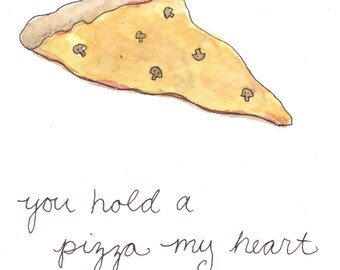 you hold a
pizza my heart